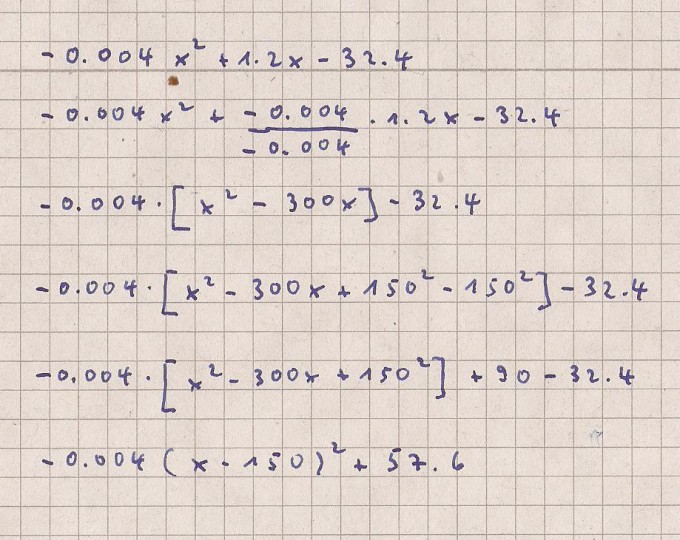 - 0.004 x² + 1.2x - 32.4
- 0.004 x² + - 0.004 / - 0.004 . 1.2x - 32.4
- 0.004 · [ x² - 300x ] - 32.4
- 0.004 · [ x² - 300x + 150² - 150² ] - 32.4
- 0.004 · [ x² - 300x + 150² ] + 90 - 32.4
- 0.004 ( x - 150 )² + 57.6